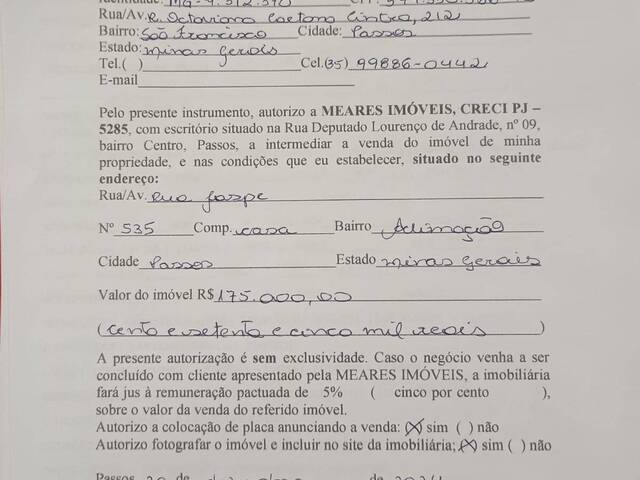 Rua/Av. R. Octaviano Caetano Cintra, 212
Bairro: São Francisco Cidade: Passos
Estado: Minas Gerais
Tel.( ) Cel.(35) 99886-0442
E-mail
Pelo presente instrumento, autorizo a MEARES IMÓVEIS, CRECI PJ –
5285, com escritório situado na Rua Deputado Lourenço de Andrade, nº 09,
bairro Centro, Passos, a intermediar a venda do imóvel de minha
propriedade, e nas condições que eu estabelecer, situado no seguinte
endereço:
Rua/Av. Rua Jaspe
Nº 535 Comp. casa Bairro Aclimação
Cidade Passos Estado Minas Gerais
Valor do imóvel R$ 175.000,00
(cento e setenta e cinco mil reais)
A presente autorização é sem exclusividade. Caso o negócio venha a ser
concluído com cliente apresentado pela MEARES IMÓVEIS, a imobiliária
fará jus à remuneração pactuada de 5% ( cinco por cento ),
sobre o valor da venda do referido imóvel.
Autorizo a colocação de placa anunciando a venda: (X) sim ( ) não
Autorizo fotografar o imóvel e incluir no site da imobiliária; (X) sim ( ) não
Passos de de